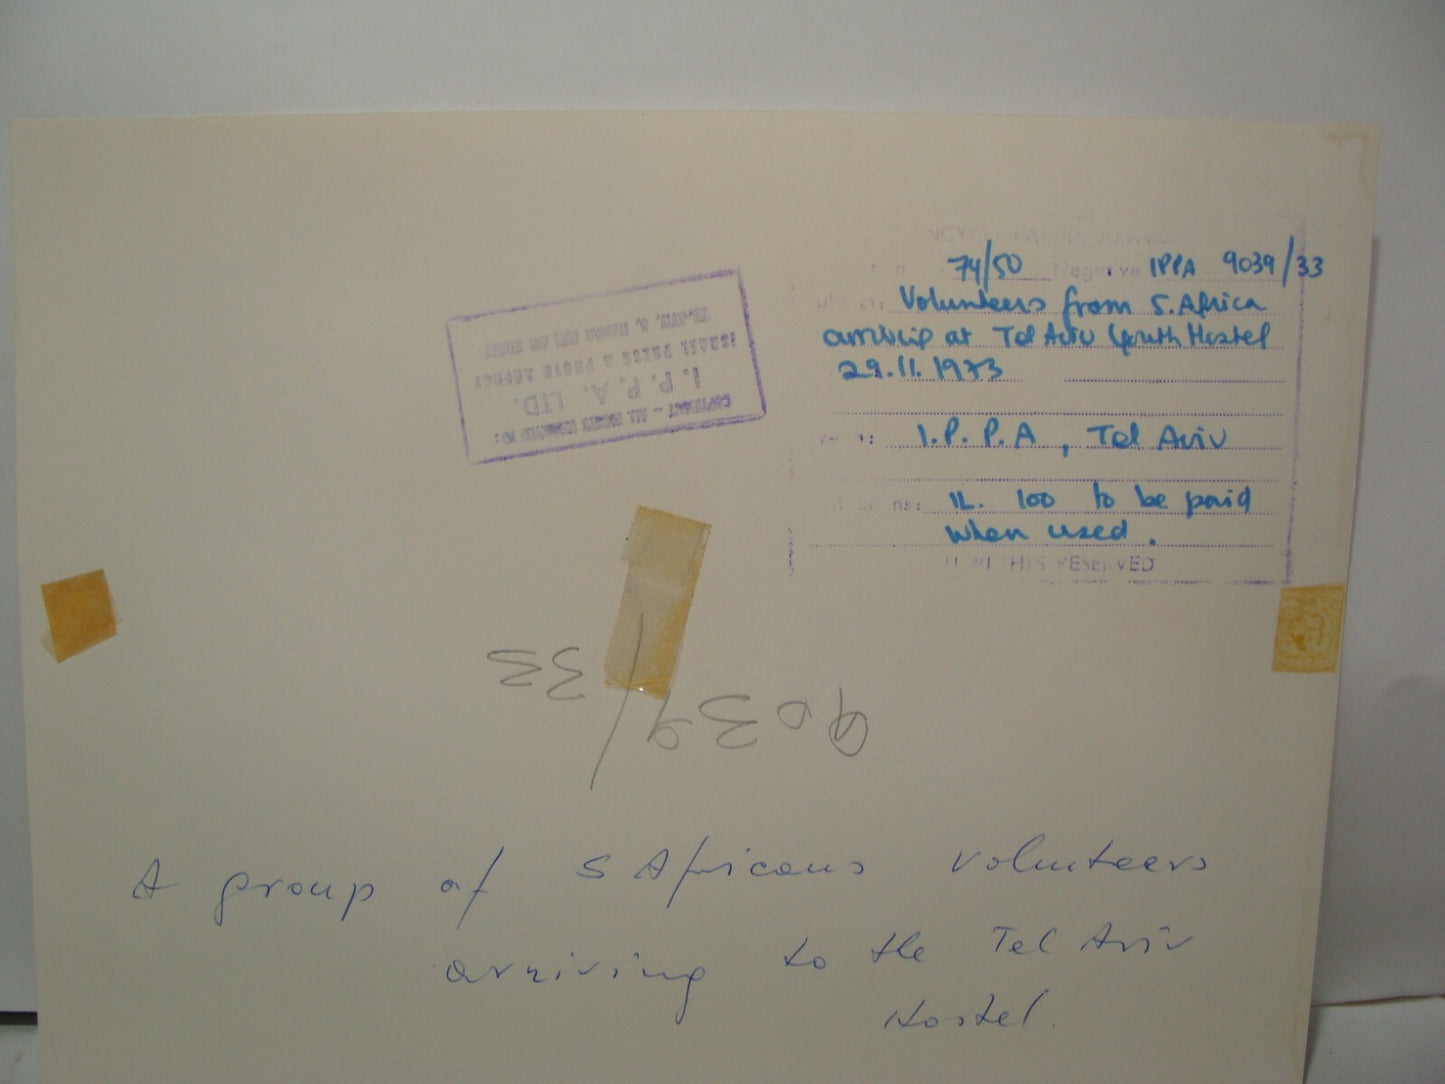 74/50 Negative IPPA 9039/33
Volunteers from S. Africa
arriving at Tel Aviv Youth Hostel
29.11.1973
I.P.P.A, Tel Aviv
IL. 100 to be paid
when used.
RESERVED
COPYRIGHT - ALL RIGHTS RESERVED TO:
I. P. P. A. LTD.
ISRAEL PRESS & PHOTO AGENCY
9039/33
A group of S Africans volunteers
arriving to the Tel Aviv
Hostel.